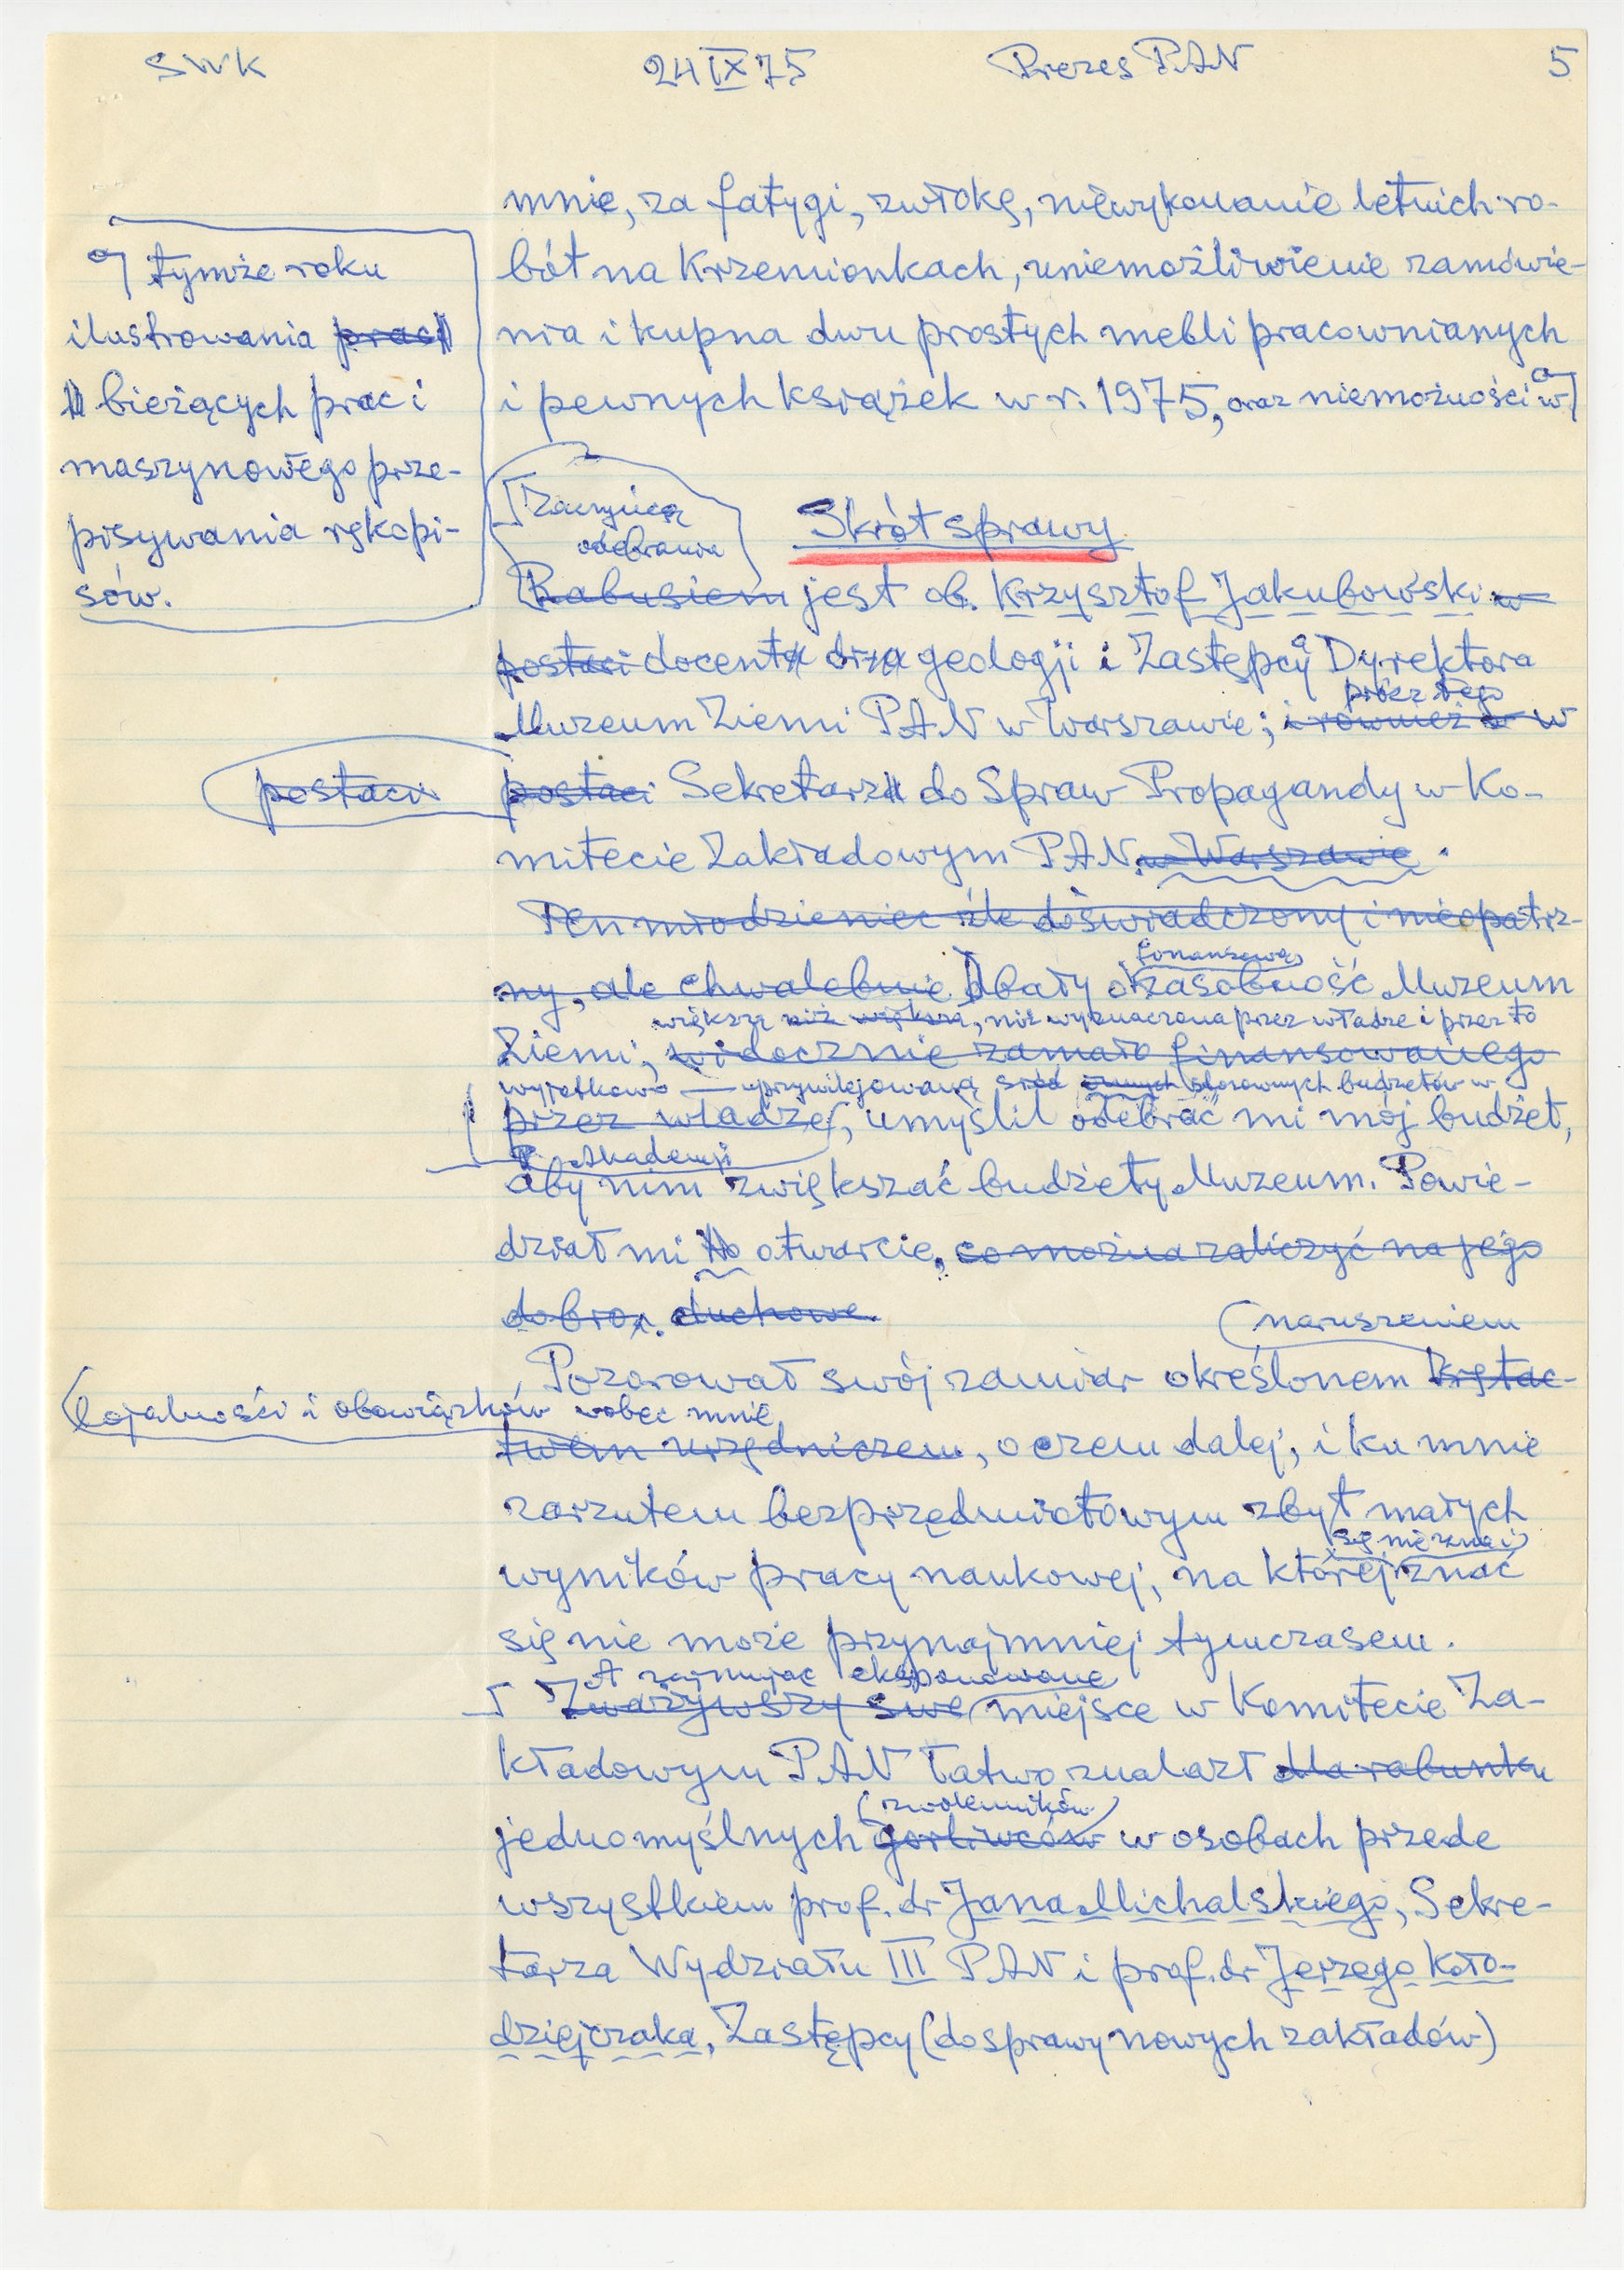 SWK 24 IX 75 Prezes PAN 5
mnie, za fatygi, zwłokę, niewykonanie letnich ro-
bót na Krzemionkach, uniemożliwienie zamówie-
nia i kupna dwu prostych mebli pracownianych
i pewnych książek w r. 1975, oraz niemożności w a)
a) tymże roku
ilustrowania prac
bieżących prac i
maszynowego prze-
pisywania rękopi-
sów.
Skrót sprawy
odebrania
Rabusiem jest ob. Krzysztof Jakubowski w
postaci docenta dra geologji i Zastępcy Dyrektora
prócz tego
Muzeum Ziemi PAN w Warszawie; i również w w
postaci postaci Sekretarz do Spraw Propagandy w Ko-
mitecie Zakładowym PAN w Warszawie.
Ten młodzieniec źle doświadczony i nieopatrz-
finansową
ny, ale chwalebnie Dbały o zasobność Muzeum
większą niż większa, niż wyznaczona przez władze i przez to
Ziemi, widocznie zamało finansowanego
wyjątkowo uprzywilejowaną śród innych budżetów w
przez władze, umyślił odebrać mi mój budżet,
Akademji
aby nim zwiększać budżety Muzeum. Powie-
dział mi to otwarcie, co można zaliczyć na jego
dobro. duchowe.
naruszeniem
Pozorował swój zamiar określonem krętac-
lojalności i obowiązków wobec mnie
twem urzędniczem, o czem dalej, i ku mnie
zarzutem bezprzedmiotowym zbyt małych
się nie zna i
wyników pracy naukowej, na której znać
się nie może przynajmniej tymczasem.
A zajmując eksponowane
Zważywszy swe miejsce w Komitecie Za-
kładowym PAN łatwo znalazł dla rabunku
zwolenników
jednomyślnych gorliwców w osobach przede
wszystkiem prof. dr Jana Michalskiego, Sekre-
tarza Wydziału III PAN i prof. dr Jerzego Koło-
dziejczaka, Zastępcy (do sprawy nowych zakładów)